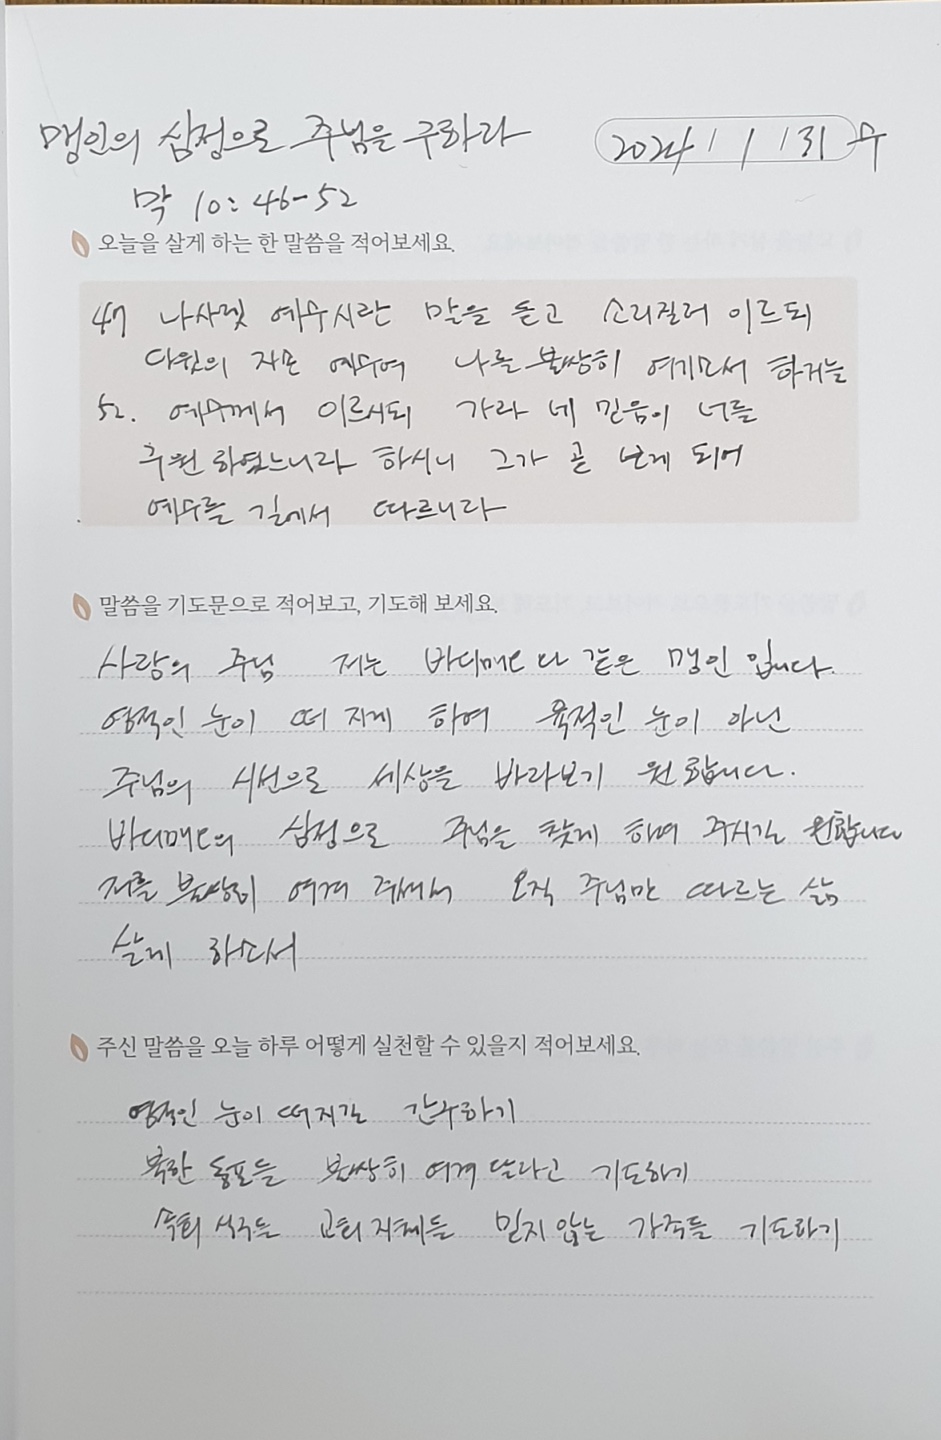 맹인의 심정으로 주님을 구하라
2024 / 1 / 31 수
막 10: 46-52
오늘을 살게 하는 한 말씀을 적어보세요.
47 나사렛 예수시란 말을 듣고 소리질러 이르되
다윗의 자손 예수여 나를 불쌍히 여기소서 하거늘
52. 예수께서 이르시되 가라 네 믿음이 너를
구원 하였느니라 하시니 그가 곧 보게 되어
예수를 길에서 따르니라
말씀을 기도문으로 적어보고, 기도해 보세요.
사랑의 주님 저는 바디매오 다 같은 맹인 입니다.
영적인 눈이 떠 지게 하여 육적인 눈이 아닌
주님의 시선으로 세상을 바라보기 원합니다.
바디매오의 심정으로 주님을 찾게 하여 주시길 원합니다
저를 불쌍히 여겨 주셔서 오직 주님만 따르는 삶
살게 하소서
주신 말씀을 오늘 하루 어떻게 실천할 수 있을지 적어보세요.
영적인 눈이 떠지길 간구하기
북한 동포들 불쌍히 여겨 달라고 기도하기
속회 식구들 교회 지체들 믿지 않는 가족들 기도하기